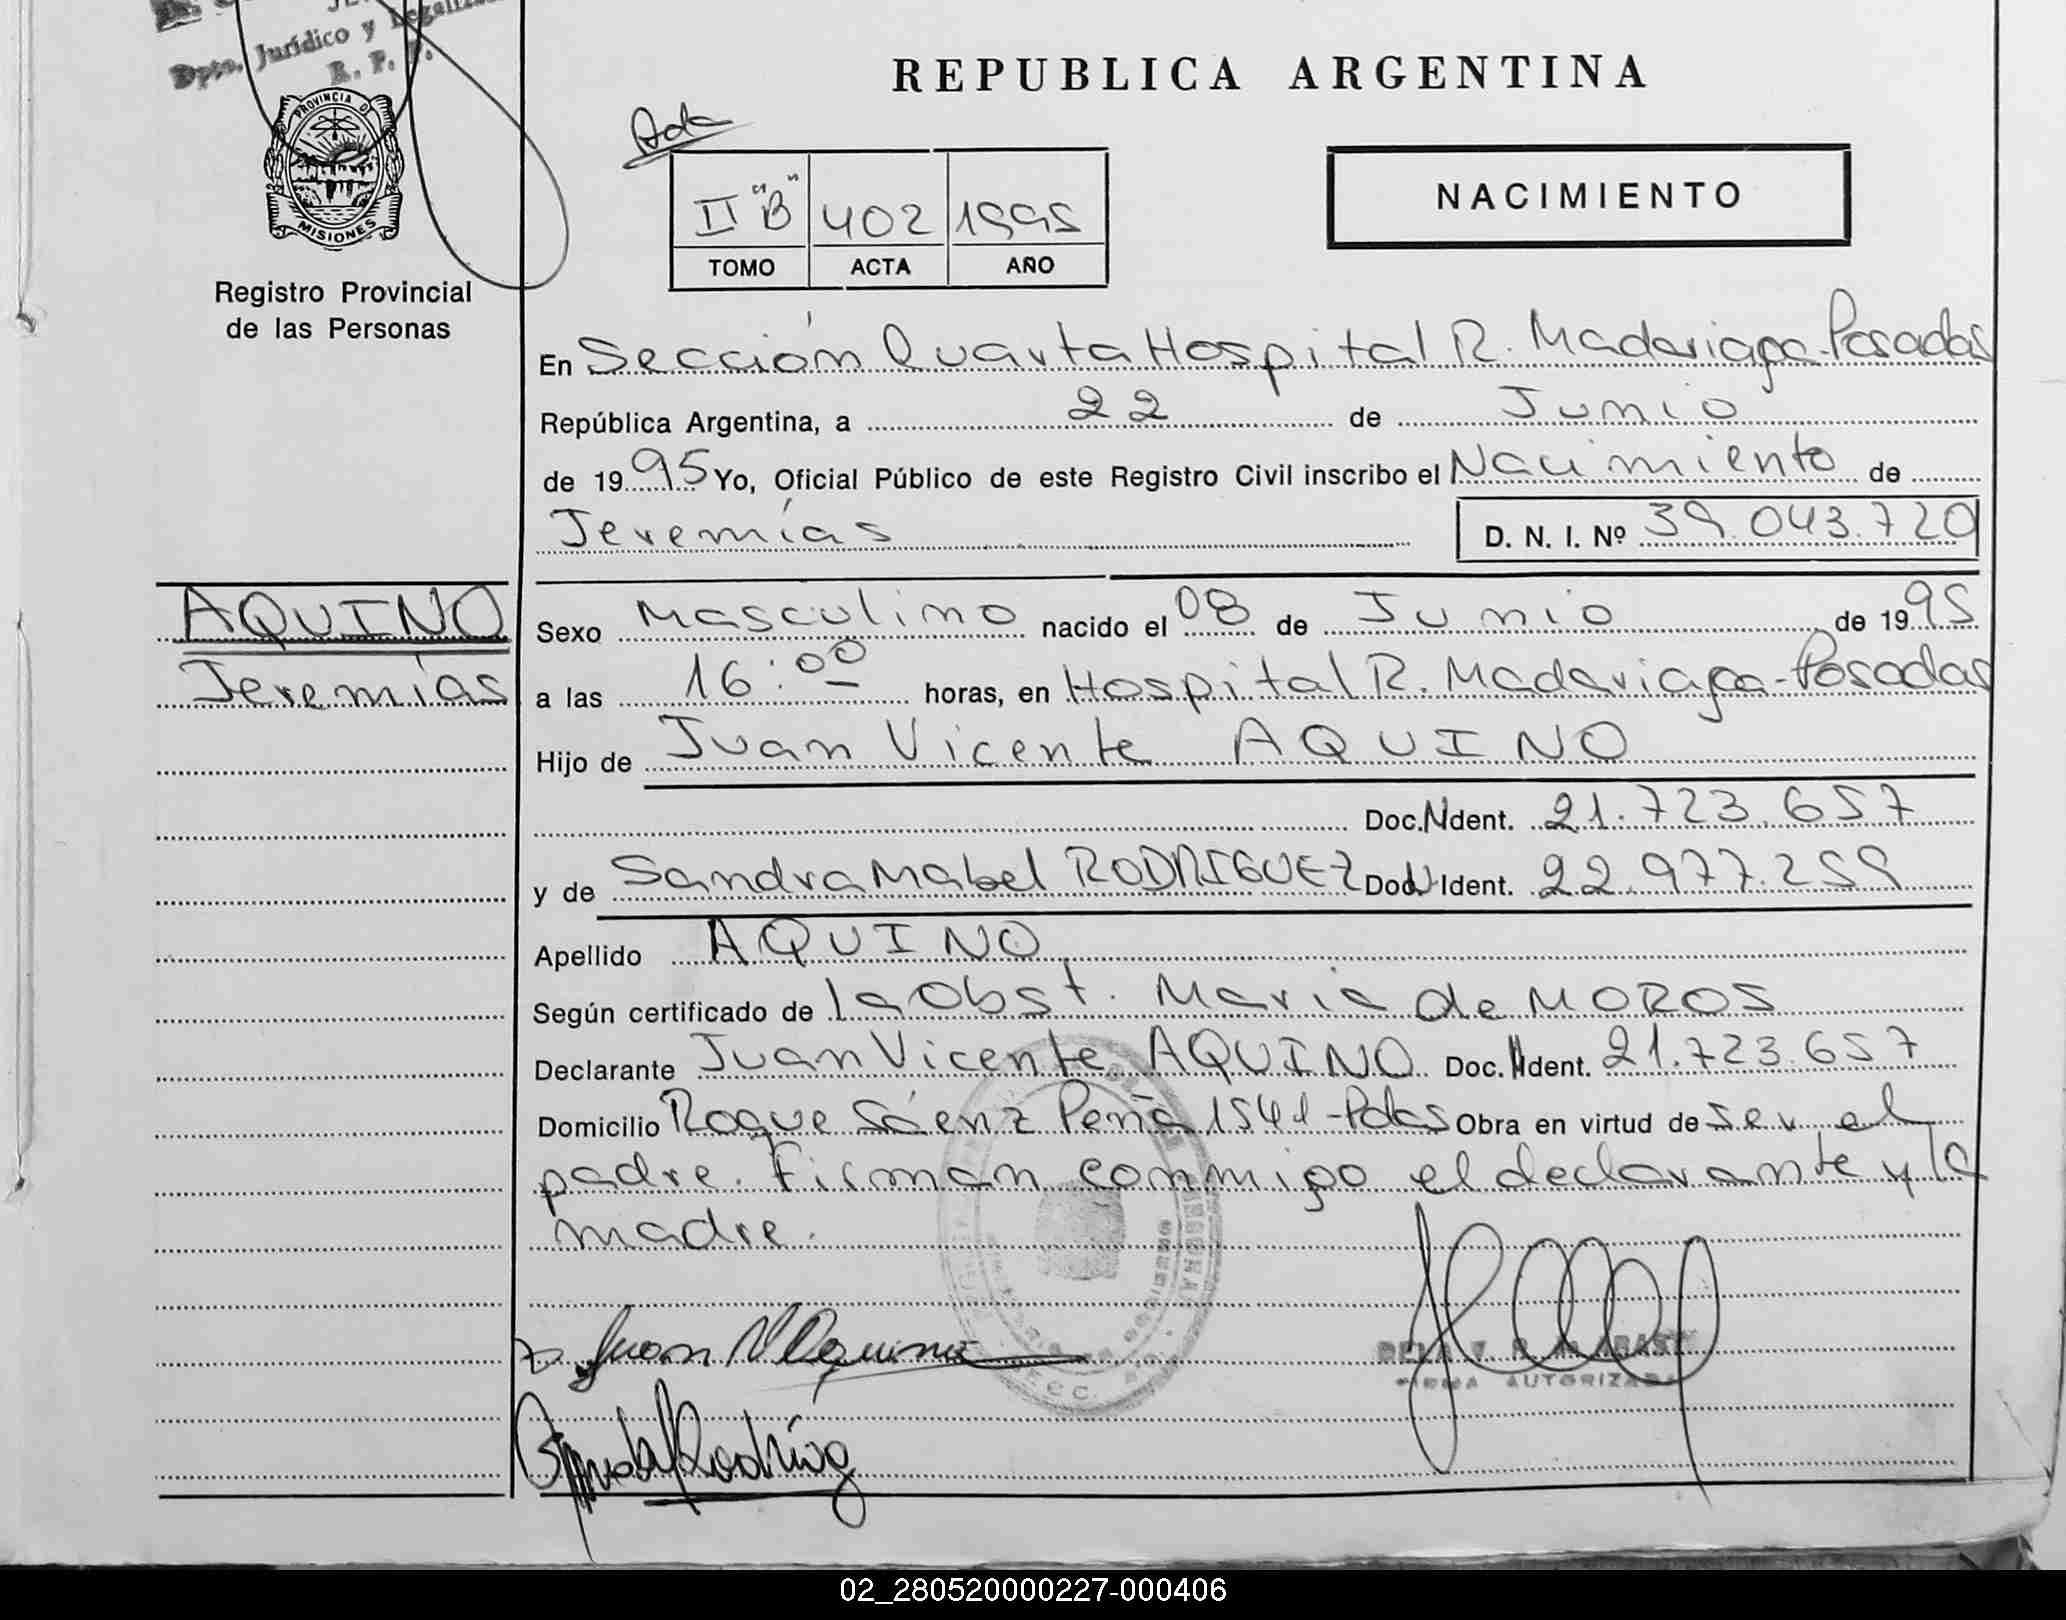 Dpto. Jurídico y
R. P. P.
PROVINCIA DE
MISIONES
Registro Provincial
de las Personas
REPUBLICA ARGENTINA
Ada
II "B" 402 1995
TOMO ACTA AÑO
NACIMIENTO
En Sección Quarta Hospital R. Madariaga-Posadas
República Argentina, a 22 de Junio
de 1995 Yo, Oficial Público de este Registro Civil inscribo el Nacimiento de
Jeremías D. N. I. Nº 39.043.720
AQUINO
Jeremías
Sexo Masculino nacido el 08 de Junio de 1995
a las 16:00 horas, en Hospital R. Madariaga-Posadas
Hijo de Juan Vicente AQUINO
Doc. Ident. 21.723.657
y de Sandra Mabel RODRIGUEZ Doc. Ident. 22.977.259
Apellido AQUINO
Según certificado de la Obst. Maria de MOROS
Declarante Juan Vicente AQUINO Doc. Ident. 21.723.657
Domicilio Roque Sáenz Peña 1541-Pdas Obra en virtud de ser el
padre. Firman conmigo el declarante y la
madre.
Juan V Aquino
FIRMA AUTORIZADA
02_280520000227-000406